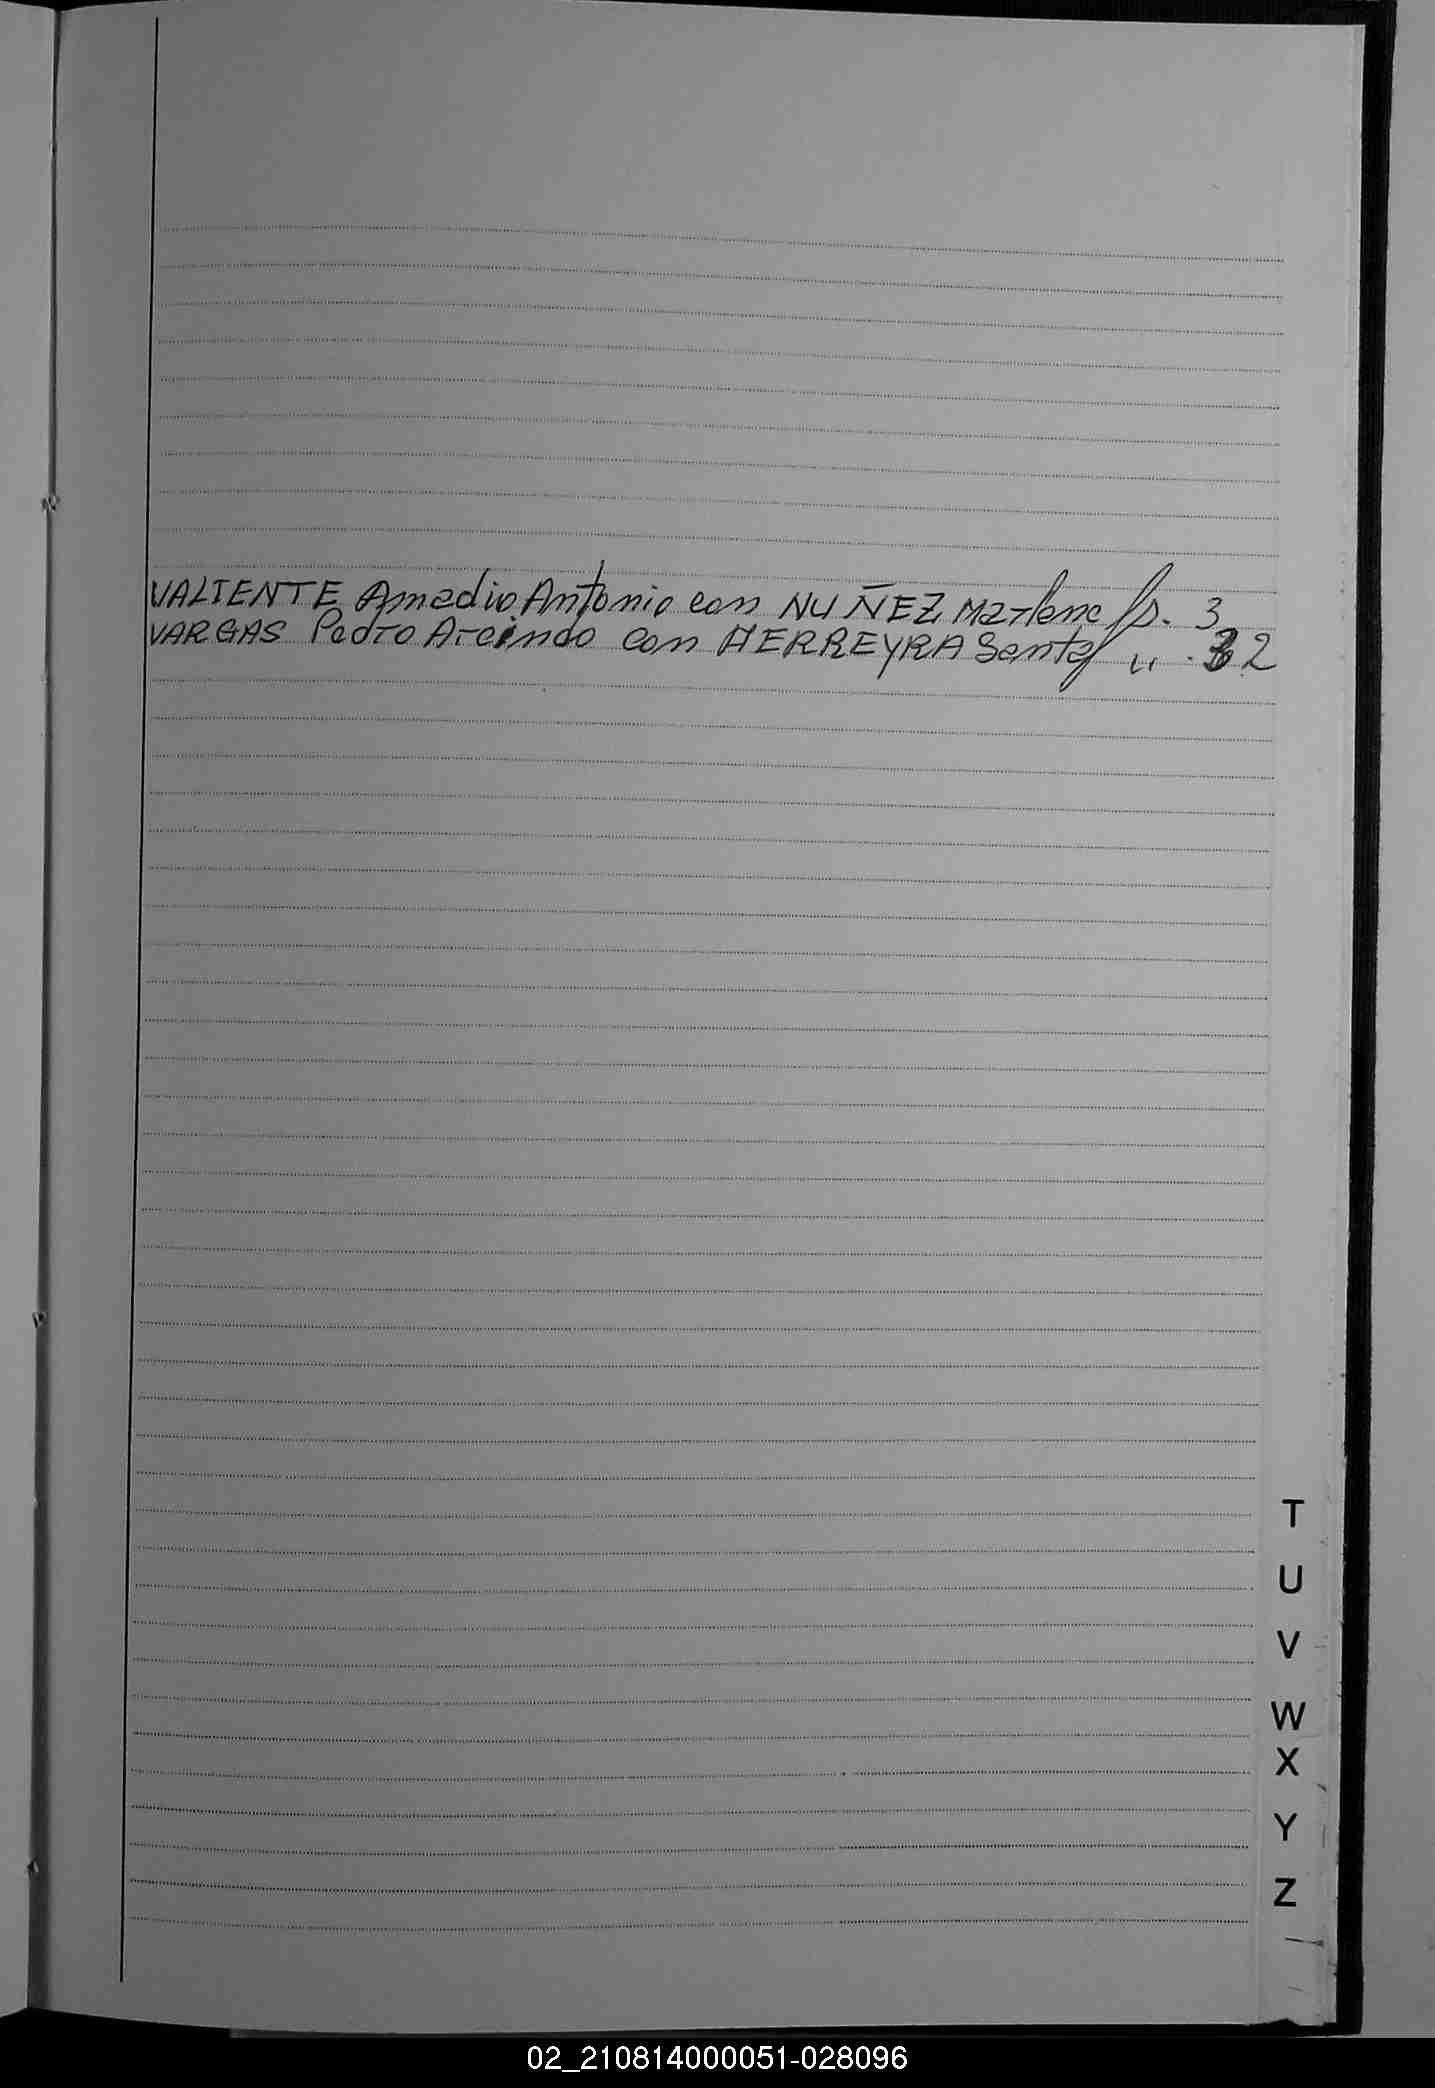 VALIENTE Amadio Antonio con NUÑEZ Marlene fs. 3
VARGAS Pedro Arcindo con HERREYRA Santa " . 2
T
U
V
W
X
Y
Z
02_210814000051-028096